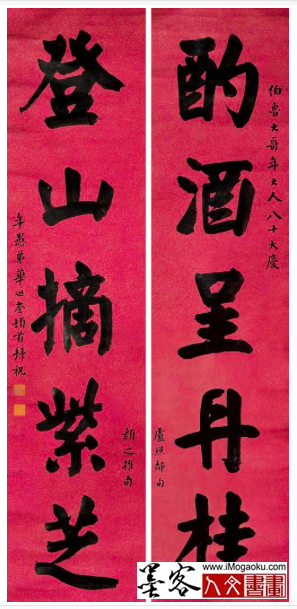 伯魯大哥年大人八十大慶
酌酒呈丹桂
盧照鄰句
登山摘紫芝
顏之推句
年愚弟華世奎頓首拜祝
www.iMogaoku.com
墨客
人文書畫